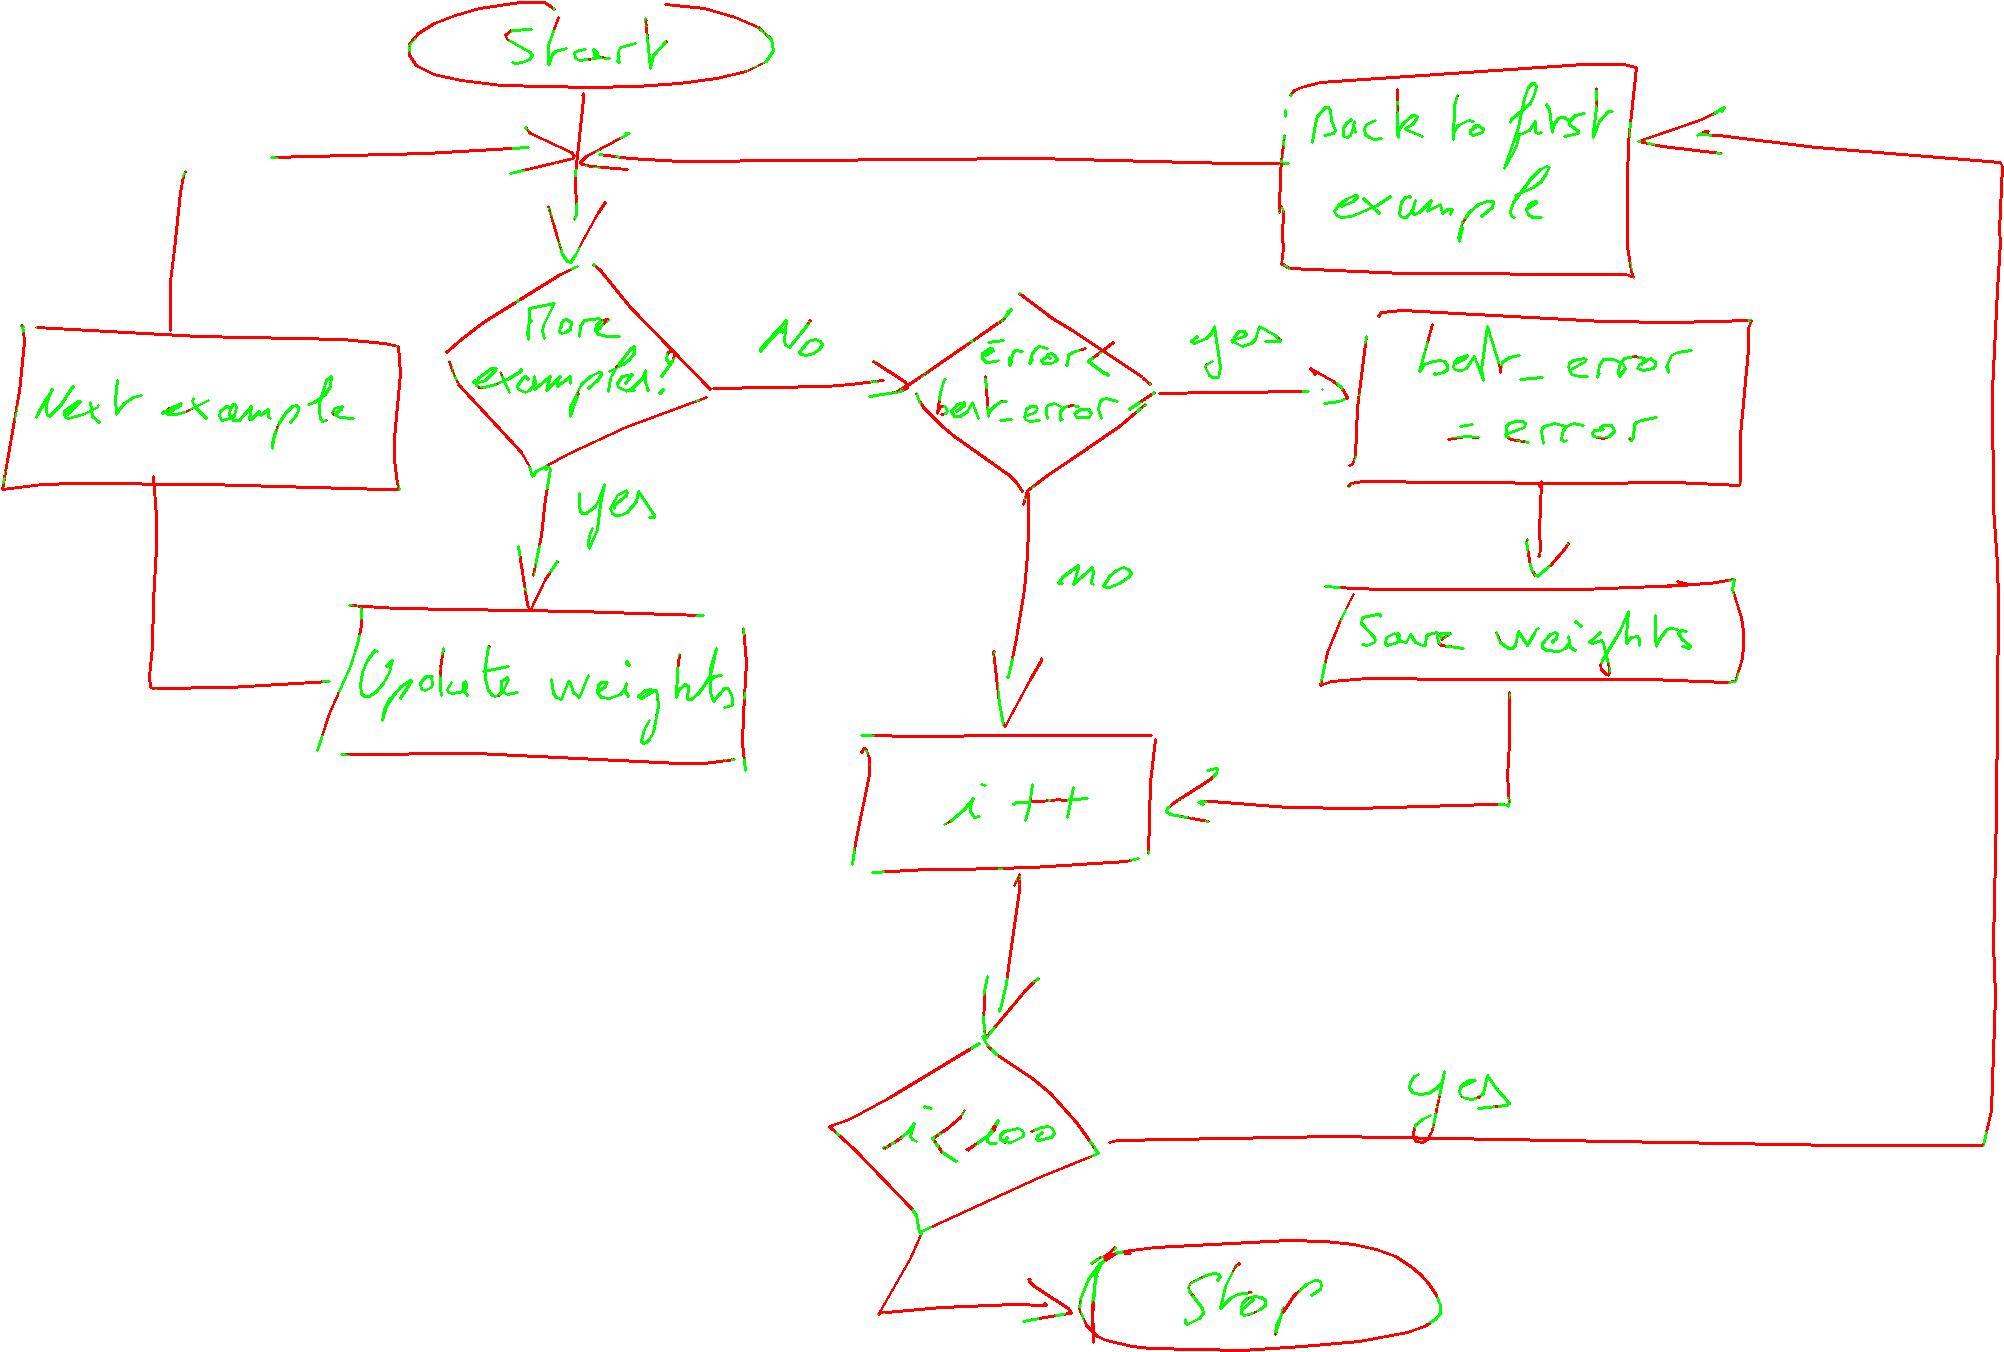 Start
Back to first
example
More
examples?
No
error<
best_error
yes
best_error
= error
Next example
yes
no
Update weights
Save weights
i ++
i<100
yes
Stop